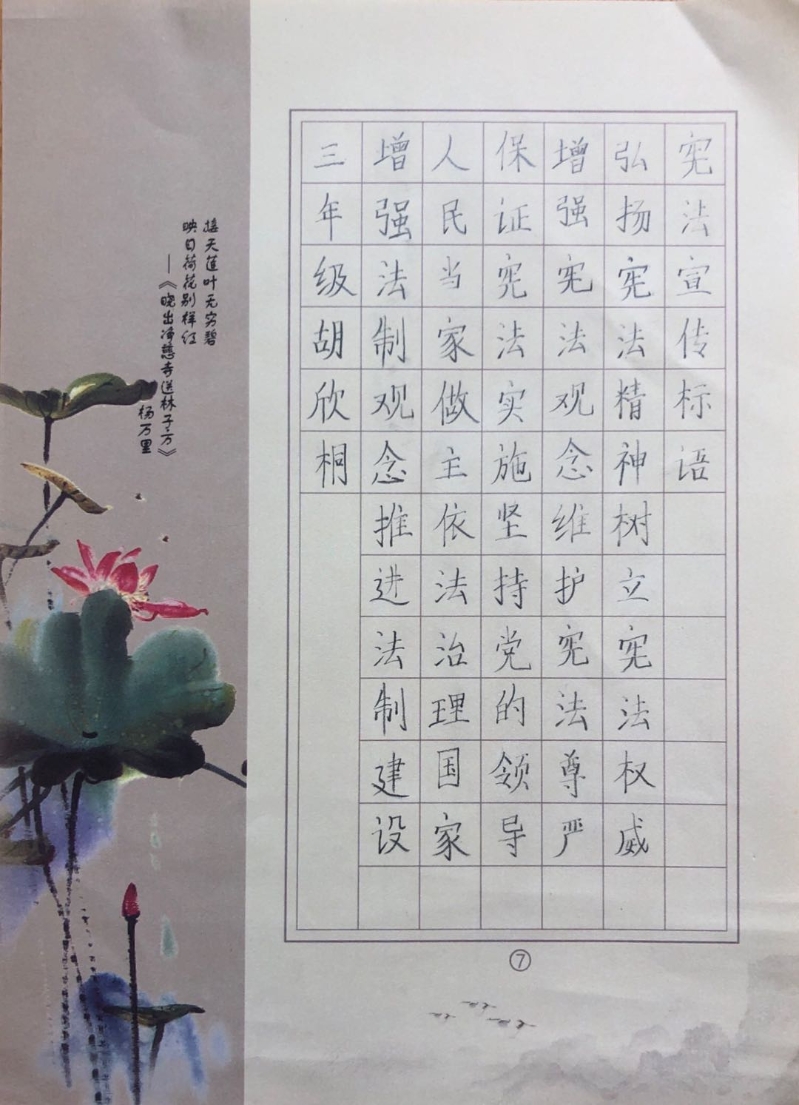 宪法宣传标语
弘扬宪法精神树立宪法权威
增强宪法观念维护宪法尊严
保证宪法实施坚持党的领导
人民当家做主依法治理国家
增强法制观念推进法制建设
三年级胡欣桐
接天莲叶无穷碧
映日荷花别样红
——《晓出净慈寺送林子方》
杨万里
⑦